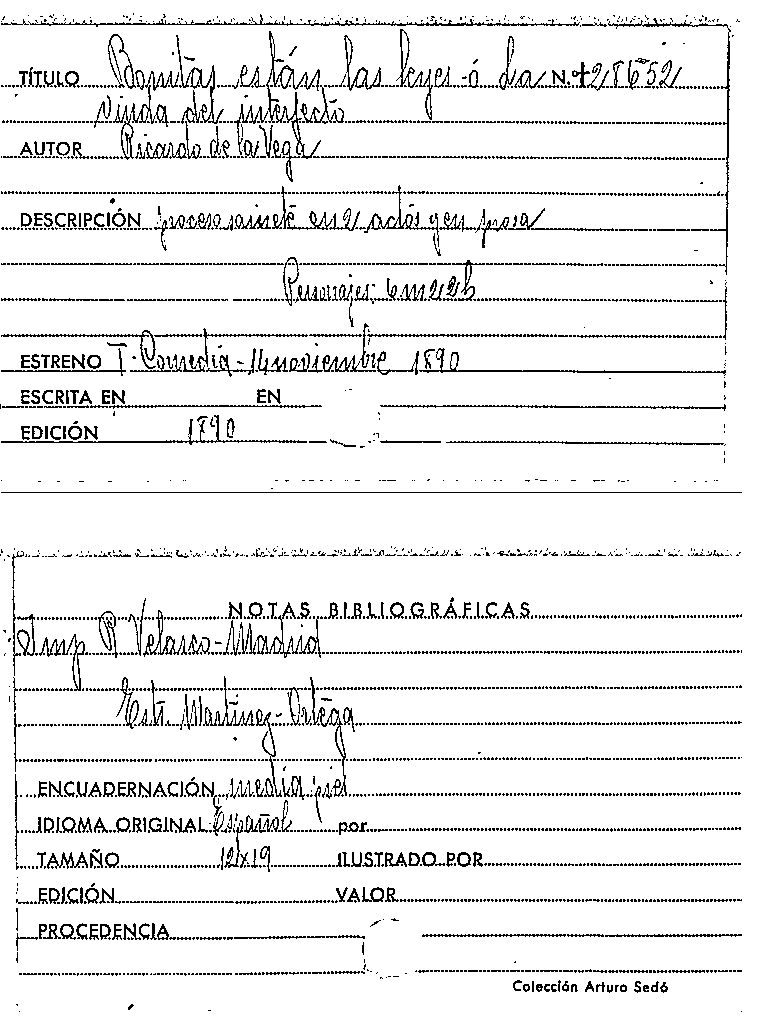 TÍTULO Bonitas están las leyes-ó La N.º 28652
Viuda del interfecto
AUTOR Ricardo de la Vega
DESCRIPCIÓN proceso sainete en 2 actos y en prosa
Personajes: 6 m 22 h
ESTRENO T. Comedia-14 noviembre 1890
ESCRITA EN EN
EDICIÓN 1890
NOTAS BIBLIOGRÁFICAS
Imp R Velasco-Madrid
Estr. Martinez-Ortega
ENCUADERNACIÓN media piel
IDIOMA ORIGINAL Español por
TAMAÑO 12x19 ILUSTRADO POR
EDICIÓN VALOR
PROCEDENCIA
Colección Arturo Sedó